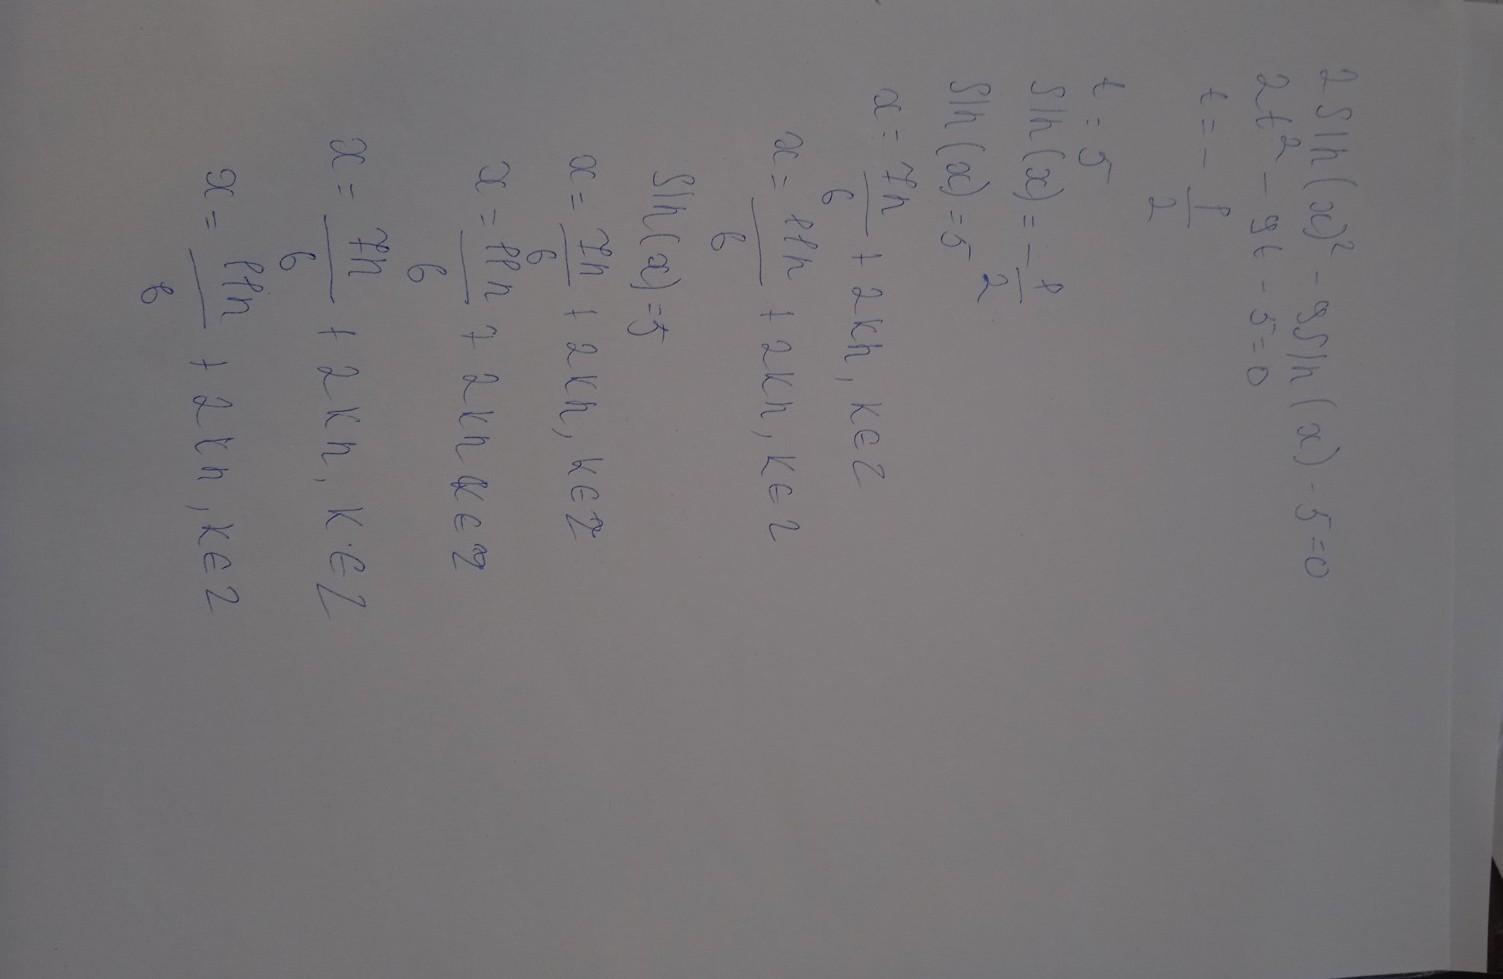 2 sin(x)² - 9sin(x) - 5=0
2t² - 9t - 5=0
t= - 1/2
t=5
sin(x)= - 1/2
sin(x)=5
x= 7π/6 + 2kπ, k∈Z
x= 11π/6 + 2kπ, k∈Z
sin(x)=5
x= 7π/6 + 2kπ, k∈Z
x= 11π/6 + 2kπ k∈Z
x= 7π/6 + 2kπ, k∈Z
x= 11π/6 + 2kπ, k∈Z